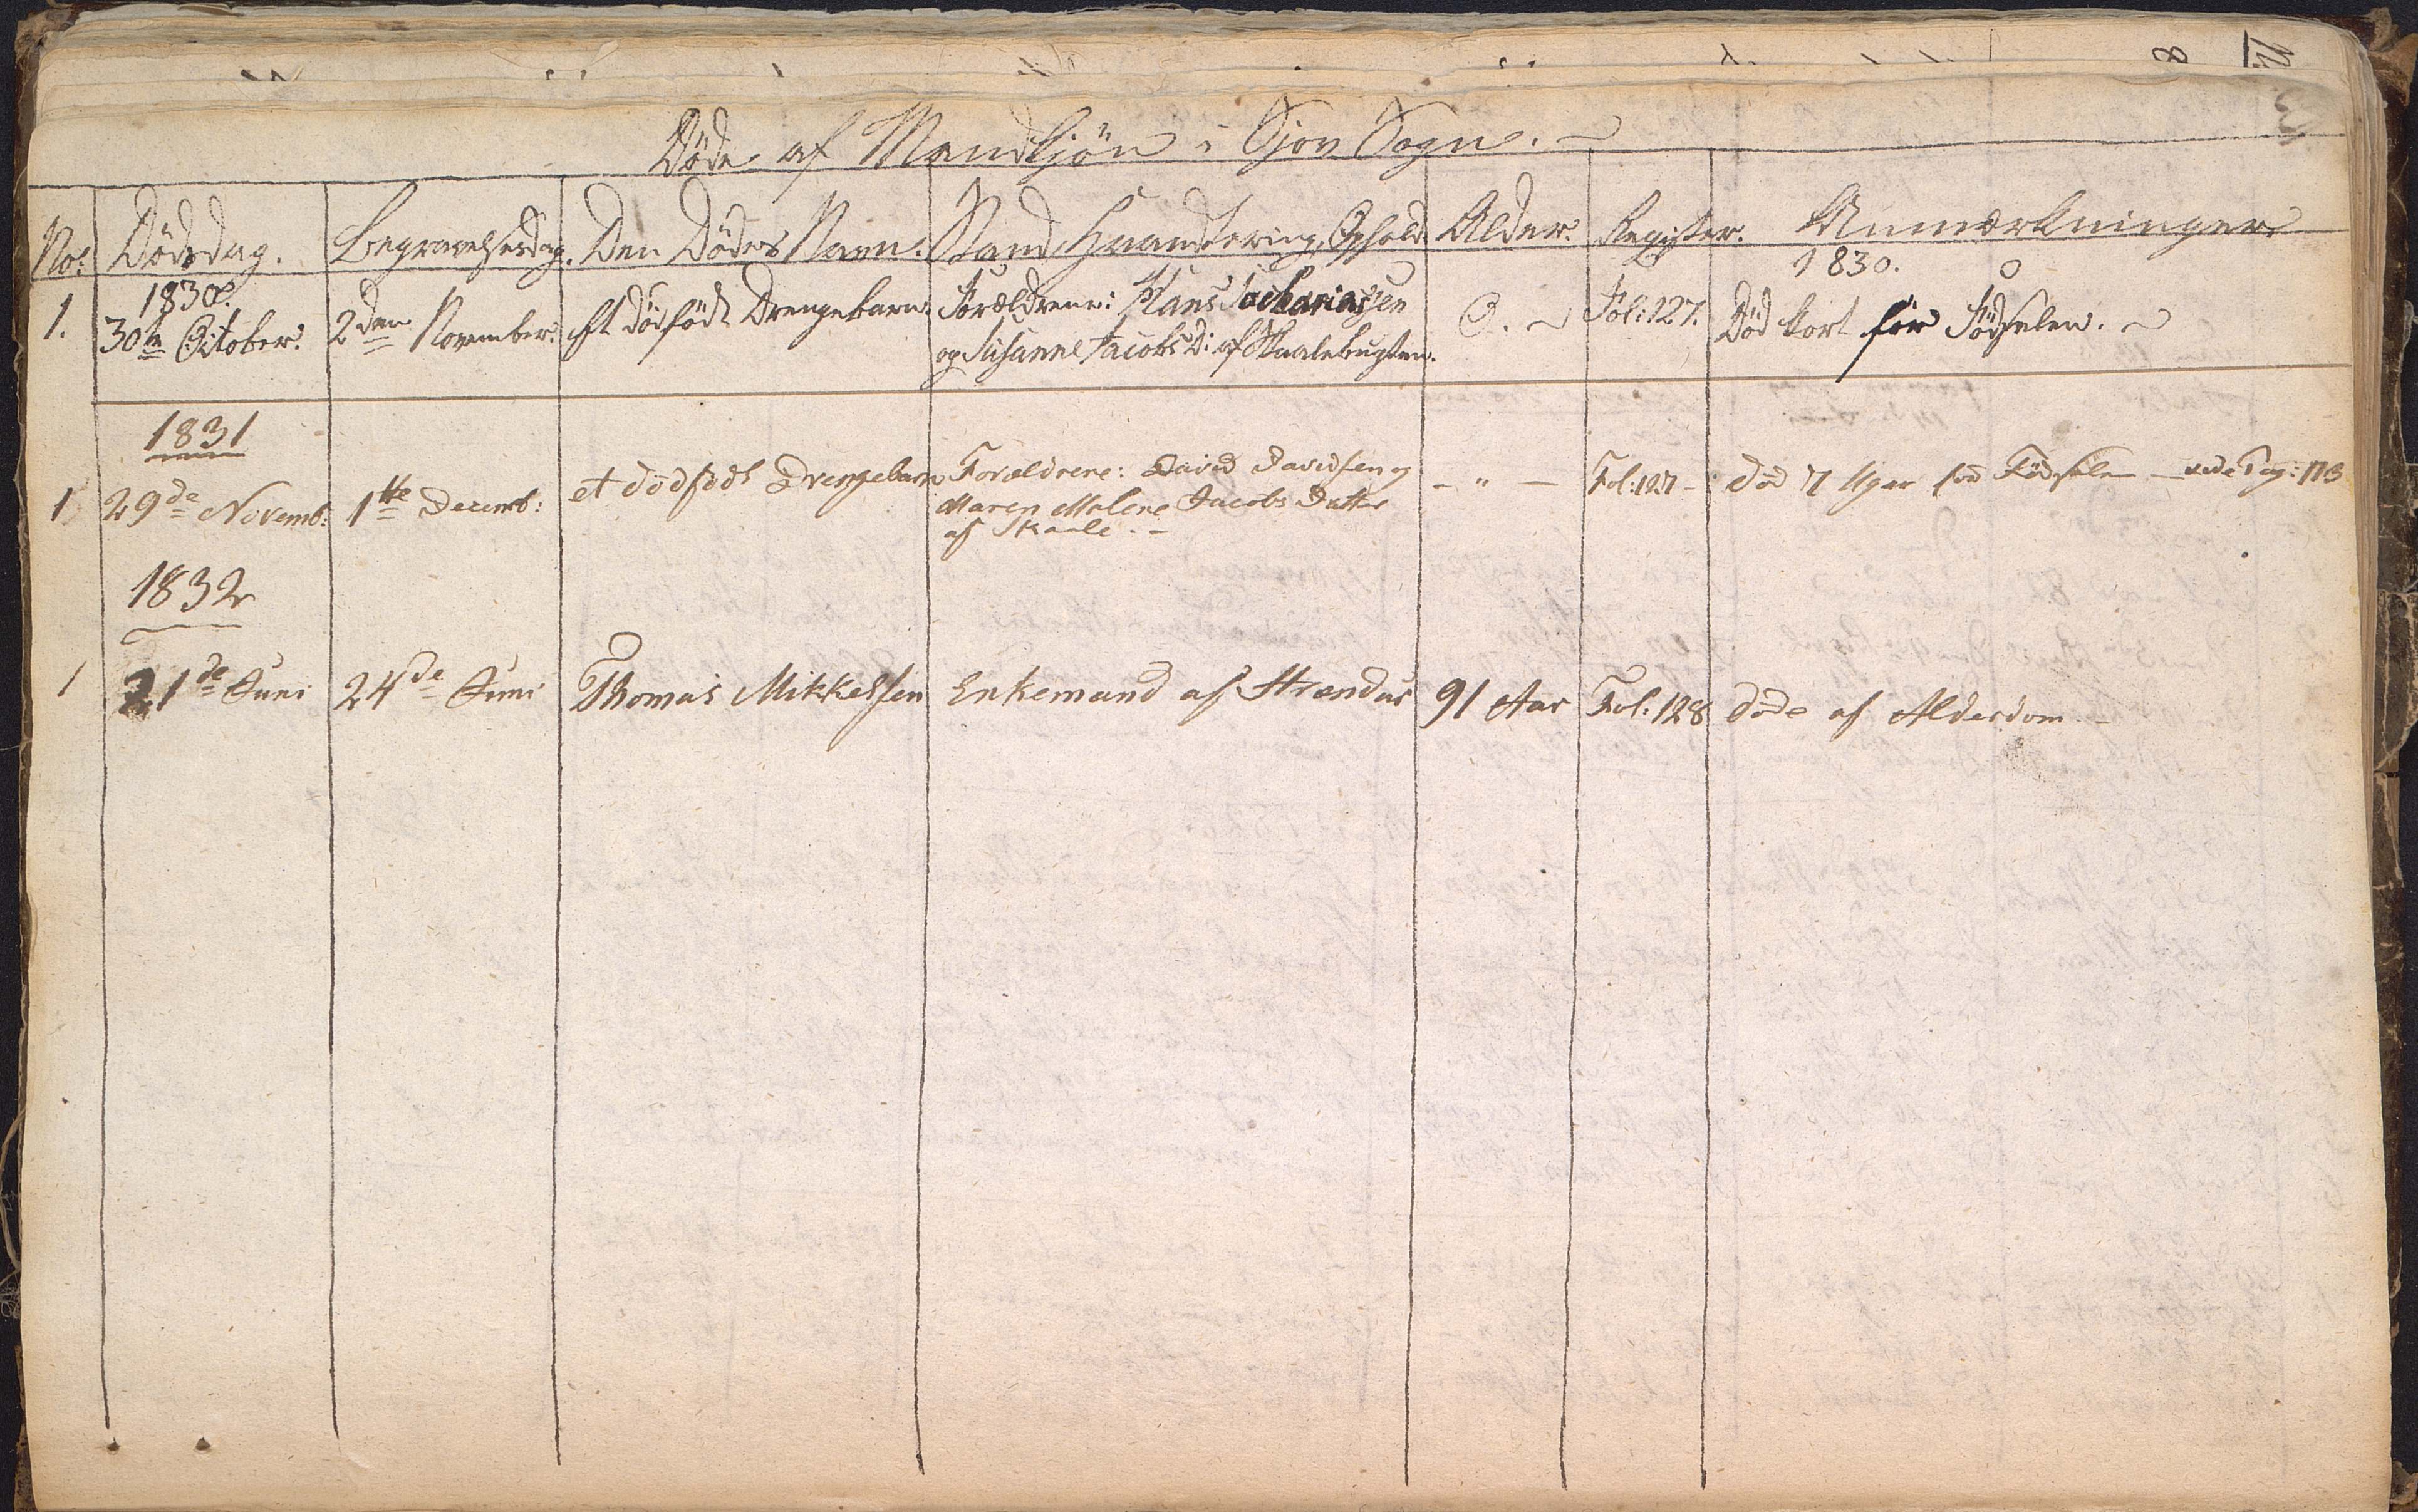 Døde af Mandkjøn i Gjov Sogn.
No: Dødsdag. Begravelsesdag. Den Dødes Navn. Stand, Handtering, Ophold Alder. Register. Anmærkninger
1830. 1830.
1. 30te October. 2den November. Et dødfødt Drengebarn. Forældrene: Hans Zachariasen 0. Fol: 127. Død kort før Fødselen.
og Susanne Jacobs D: af Skaalebugten.
1831
1 29de Novemb: 1ste Decemb: et dødfødt Drengebarn Forældrene: David Davidsen og - " - Fol: 127 - død 7 Uger før Fødselen - vide Pag: 113
Maren Malene Jacobs Datter
af Skaale. -
1832
1 21de Juni 24de Juni Thomas Mikkelsen Enkemand af Strændur 91 Aar Fol: 128 døde af Alderdom. -
8